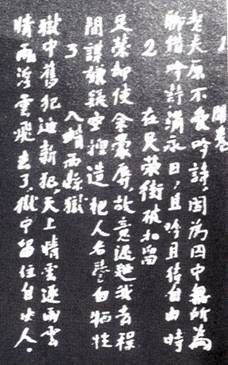 1 開卷
老夫原不愛吟詩,因為囚中無所為
聊借吟詩消永日,且吟且待自由時
2 在足榮街被扣留
足榮却使余蒙辱,故意遲延我去程
間諜嫌疑空捏造,把人名譽白犧牲
3 入靖西縣獄
獄中舊犯迎新犯,天上晴雲逐雨雲
晴雨浮雲飛去了,獄中留住自由人。